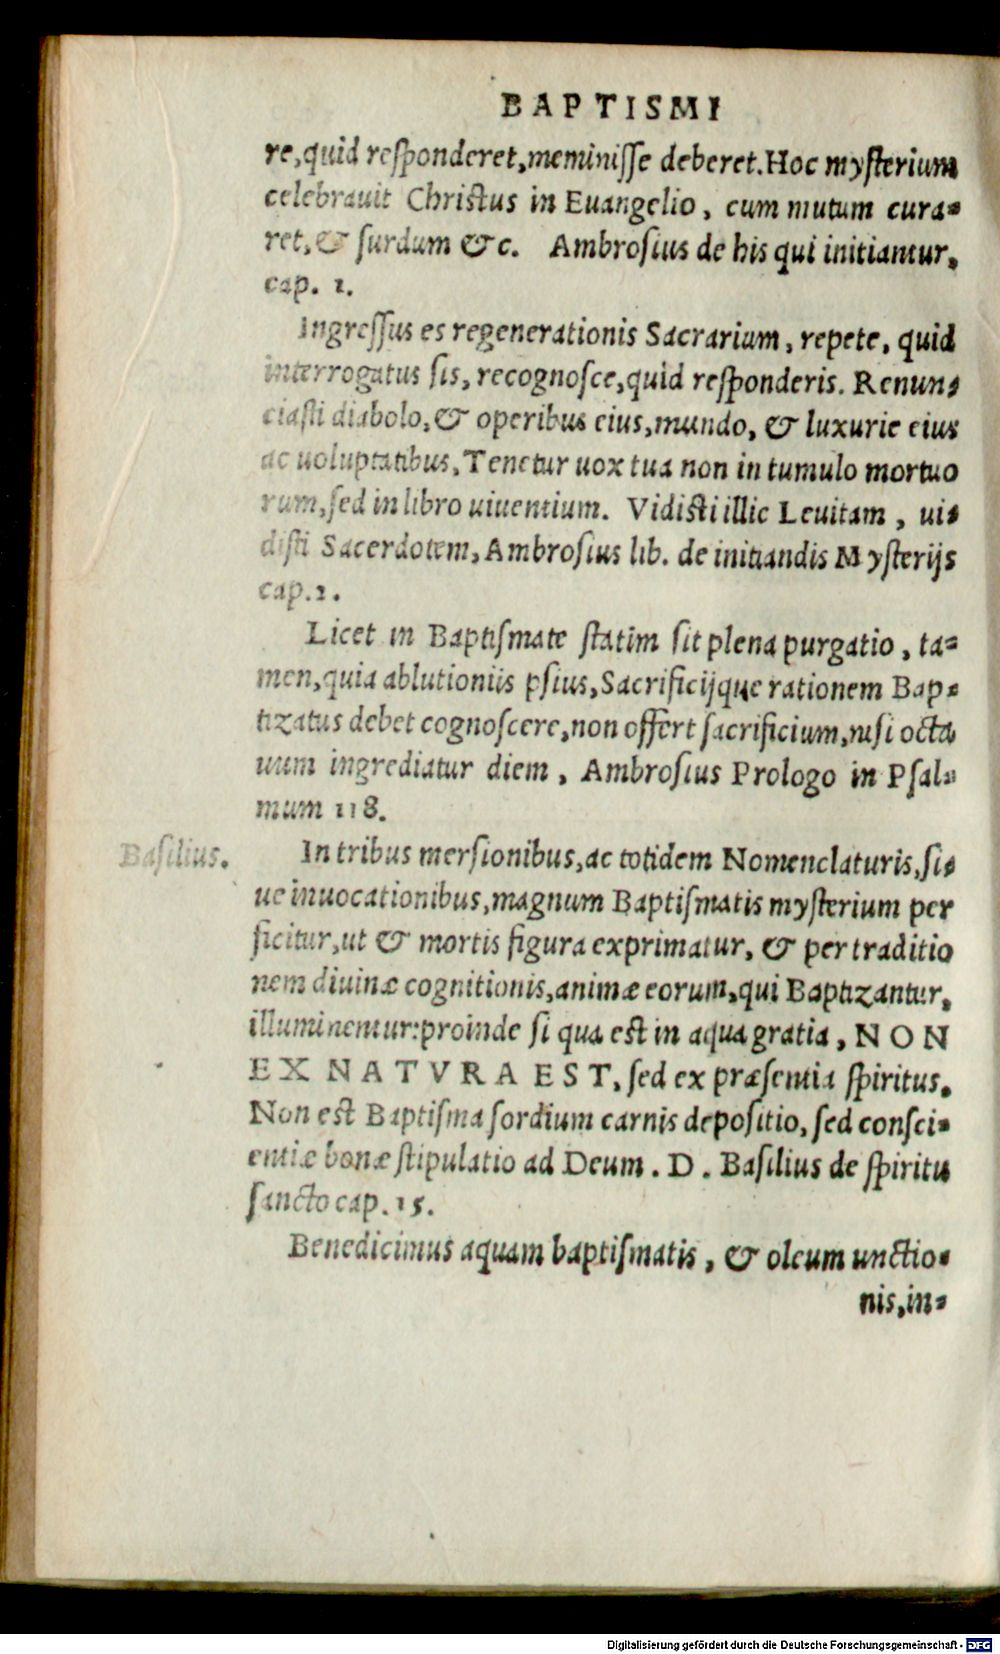 BAPTISMI
re,quid reſponderet,meminiſſe deberet.Hoc myſterium
celebrauit Chriſtus in Euangelio, cum mutum cura=
ret,& ſurdum &c. Ambroſius de his qui initiantur,
cap. 1.
Ingreſſus es regenerationis Sacrarium, repete, quid
interrogatus ſis, recognoſce,quid reſponderis. Renun=
ciaſti diabolo,& operibus eius,mundo, & luxurie eius
ac uoluptatibus, Tenetur uox tua non in tumulo mortuo
rum,ſed in libro uiuentium. Vidiſti illic Leuitam, ui=
diſti Sacerdotem, Ambroſius lib. de initiandis Myſterijs
cap.2.
Licet in Baptiſmate ſtatim ſit plena purgatio, ta=
men,quia ablutioniis pſius,Sacrificijque rationem Bap=
tizatus debet cognoſcere,non offert ſacrificium,niſi octa
uum ingrediatur diem, Ambroſius Prologo in Pſal=
mum 118.
Baſilius.
In tribus merſionibus,ac totidem Nomenclaturis,ſi=
ue inuocationibus,magnum Baptiſmatis myſterium per
ficitur,ut & mortis figura exprimatur, & per traditio
nem diuinæ cognitionis,animæ eorum,qui Baptizantur,
illuminentur:proinde ſi qua eſt in aqua gratia, NON
EX NATVRA EST, ſed ex præſentia ſpiritus.
Non eſt Baptiſma ſordium carnis depoſitio, ſed conſci=
entiæ bonæ ſtipulatio ad Deum. D. Baſilius de ſpiritu
ſancto cap.15.
Benedicimus aquam baptiſmatis, & oleum unctio=
nis,in=
Digitalisierung gefördert durch die Deutsche Forschungsgemeinschaft - DFG